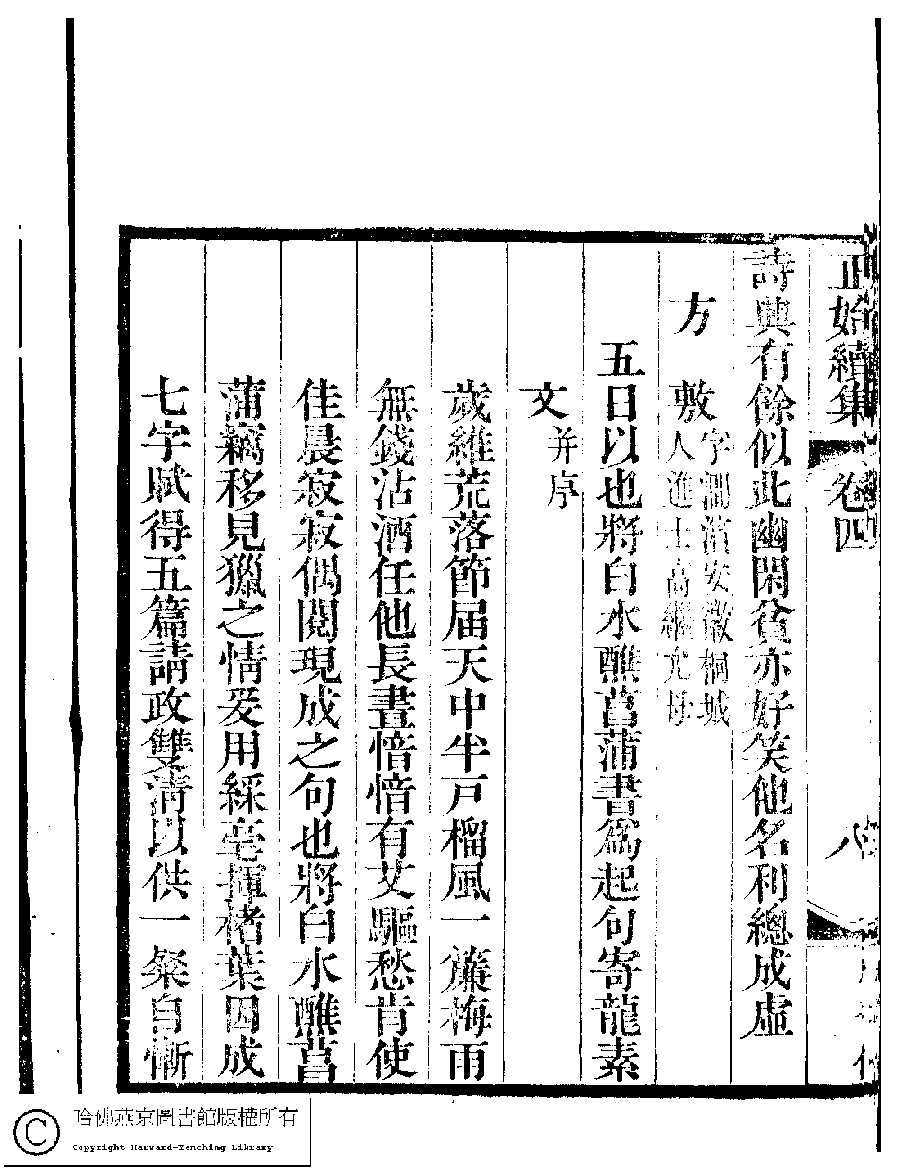 正始續集 卷四 八
詩興有餘似此幽閑貧亦好笑他名利總成虛
方 敷 字澗濱安徽桐城
人進士高繼允母
五日以也將白水醮菖蒲書爲起句寄龍素
文 并序
歲維荒落節届天中半戸榴風一簾梅雨
無錢沽酒任他長晝愔愔有艾驅愁肯使
佳晨寂寂偶閱現成之句也將白水醮菖
蒲竊移見獵之情爰用綵毫揮楮葉因成
七字賦得五篇請政雙淸以供一粲自慚
哈佛燕京圖書館版權所有
Copyright Harvard-Yenching Library